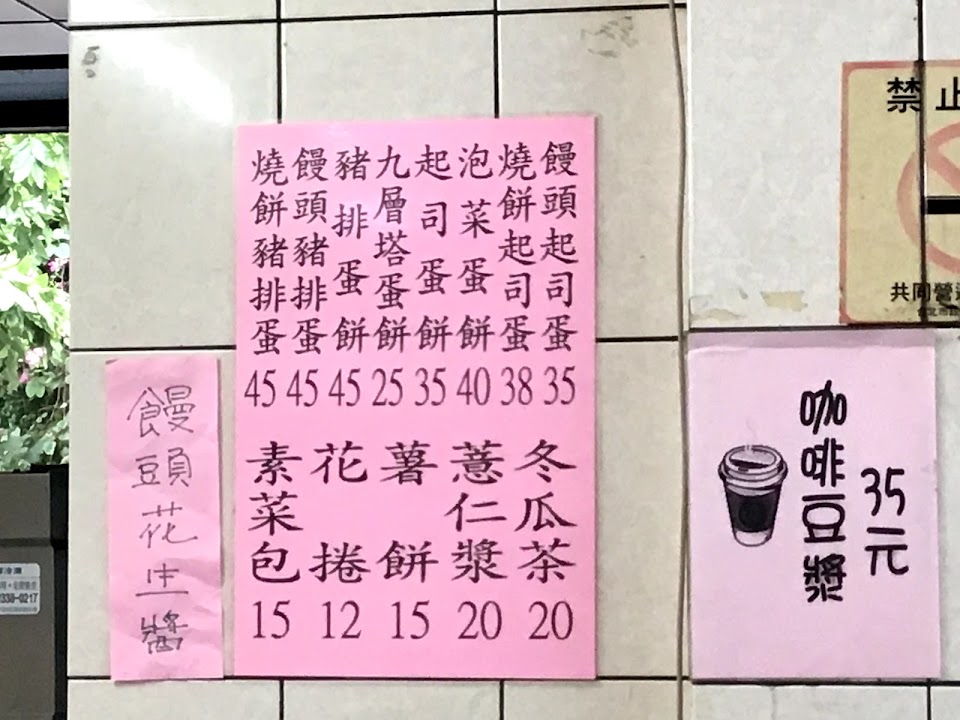 饅頭起司蛋 35
燒餅起司蛋 38
泡菜蛋餅 40
起司蛋餅 35
九層塔蛋餅 25
豬排蛋餅 45
饅頭豬排蛋 45
燒餅豬排蛋 45
冬瓜茶 20
薏仁漿 20
薯餅 15
花捲 12
素菜包 15
饅頭花生醬
咖啡豆漿
35元
禁止
共同營造